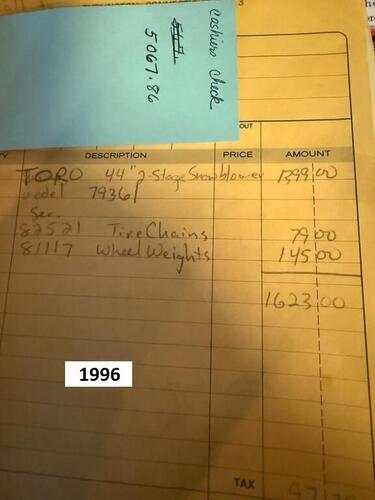 cashiers check
5067.86
3
OUT
DESCRIPTION PRICE AMOUNT
TORO 44" 2-Stage Snowblower 1399.00
model 79361
Ser.
82521 Tire Chains 79.00
81117 Wheel Weights 145.00
1623.00
1996
TAX